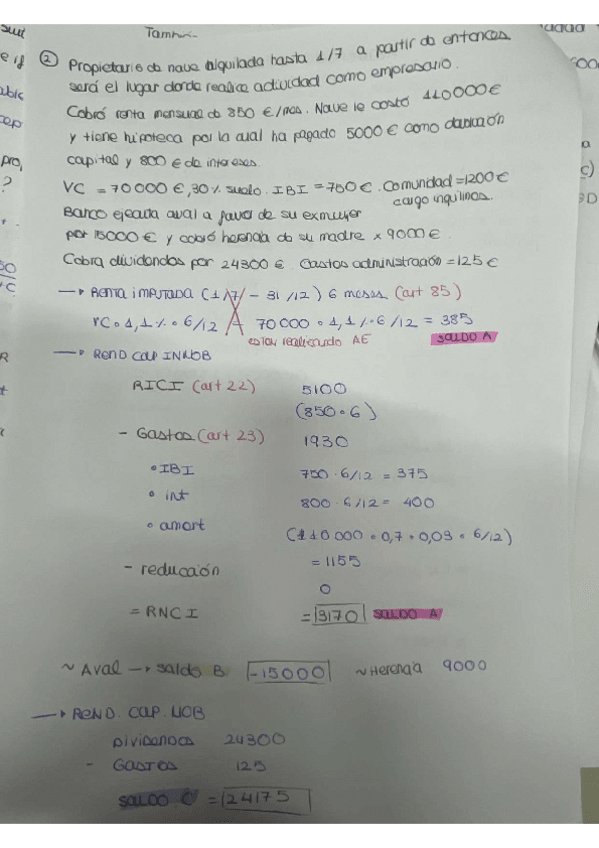 ② Propietario de nave alquilada hasta 1/7 a partir de entonces
será el lugar donde realice actividad como empresario.
Cobró renta mensual de 850 €/mes. Nave le costó 110000€
y tiene hipoteca por la cual ha pagado 5000 € como devolución
capital y 800 € de intereses.
VC = 70000 €, 30% suelo. IBI = 750€. Comunidad = 1200€
cargo inquilinos.
Banco ejecuta aval a favor de su exmujer
por 15000 € y cobró herencia de su madre x 9000 €.
Cobra dividendos por 24300 €. Gastos administración = 125 €
→ Renta imputada (1/7/ - 31/12) 6 meses (art 85)
VC • 1,1% • 6/12 → 70000 • 1,1% • 6/12 = 385
estoy realizando AE SALDO A
→ REND CAP INMOB
RICI (art 22) 5100
(850 • 6)
- Gastos (art 23) 1930
• IBI 750 · 6/12 = 375
• int 800 · 6/12 = 400
• amort (110000 • 0,7 • 0,03 • 6/12)
= 1155
- reducción 0
= RNCI = 3170 SALDO A
~ Aval → Saldo B -15000 ~ Herencia 9000
→ REND. CAP. MOB
Dividendos 24300
- Gastos 125
SALDO C = 24175